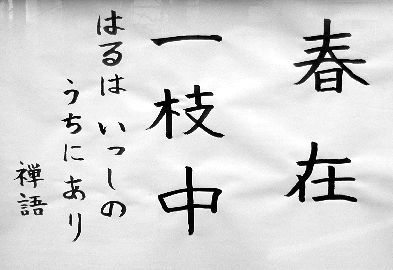 春在
一枝中
はるは いっしの
うちにあり
禅語